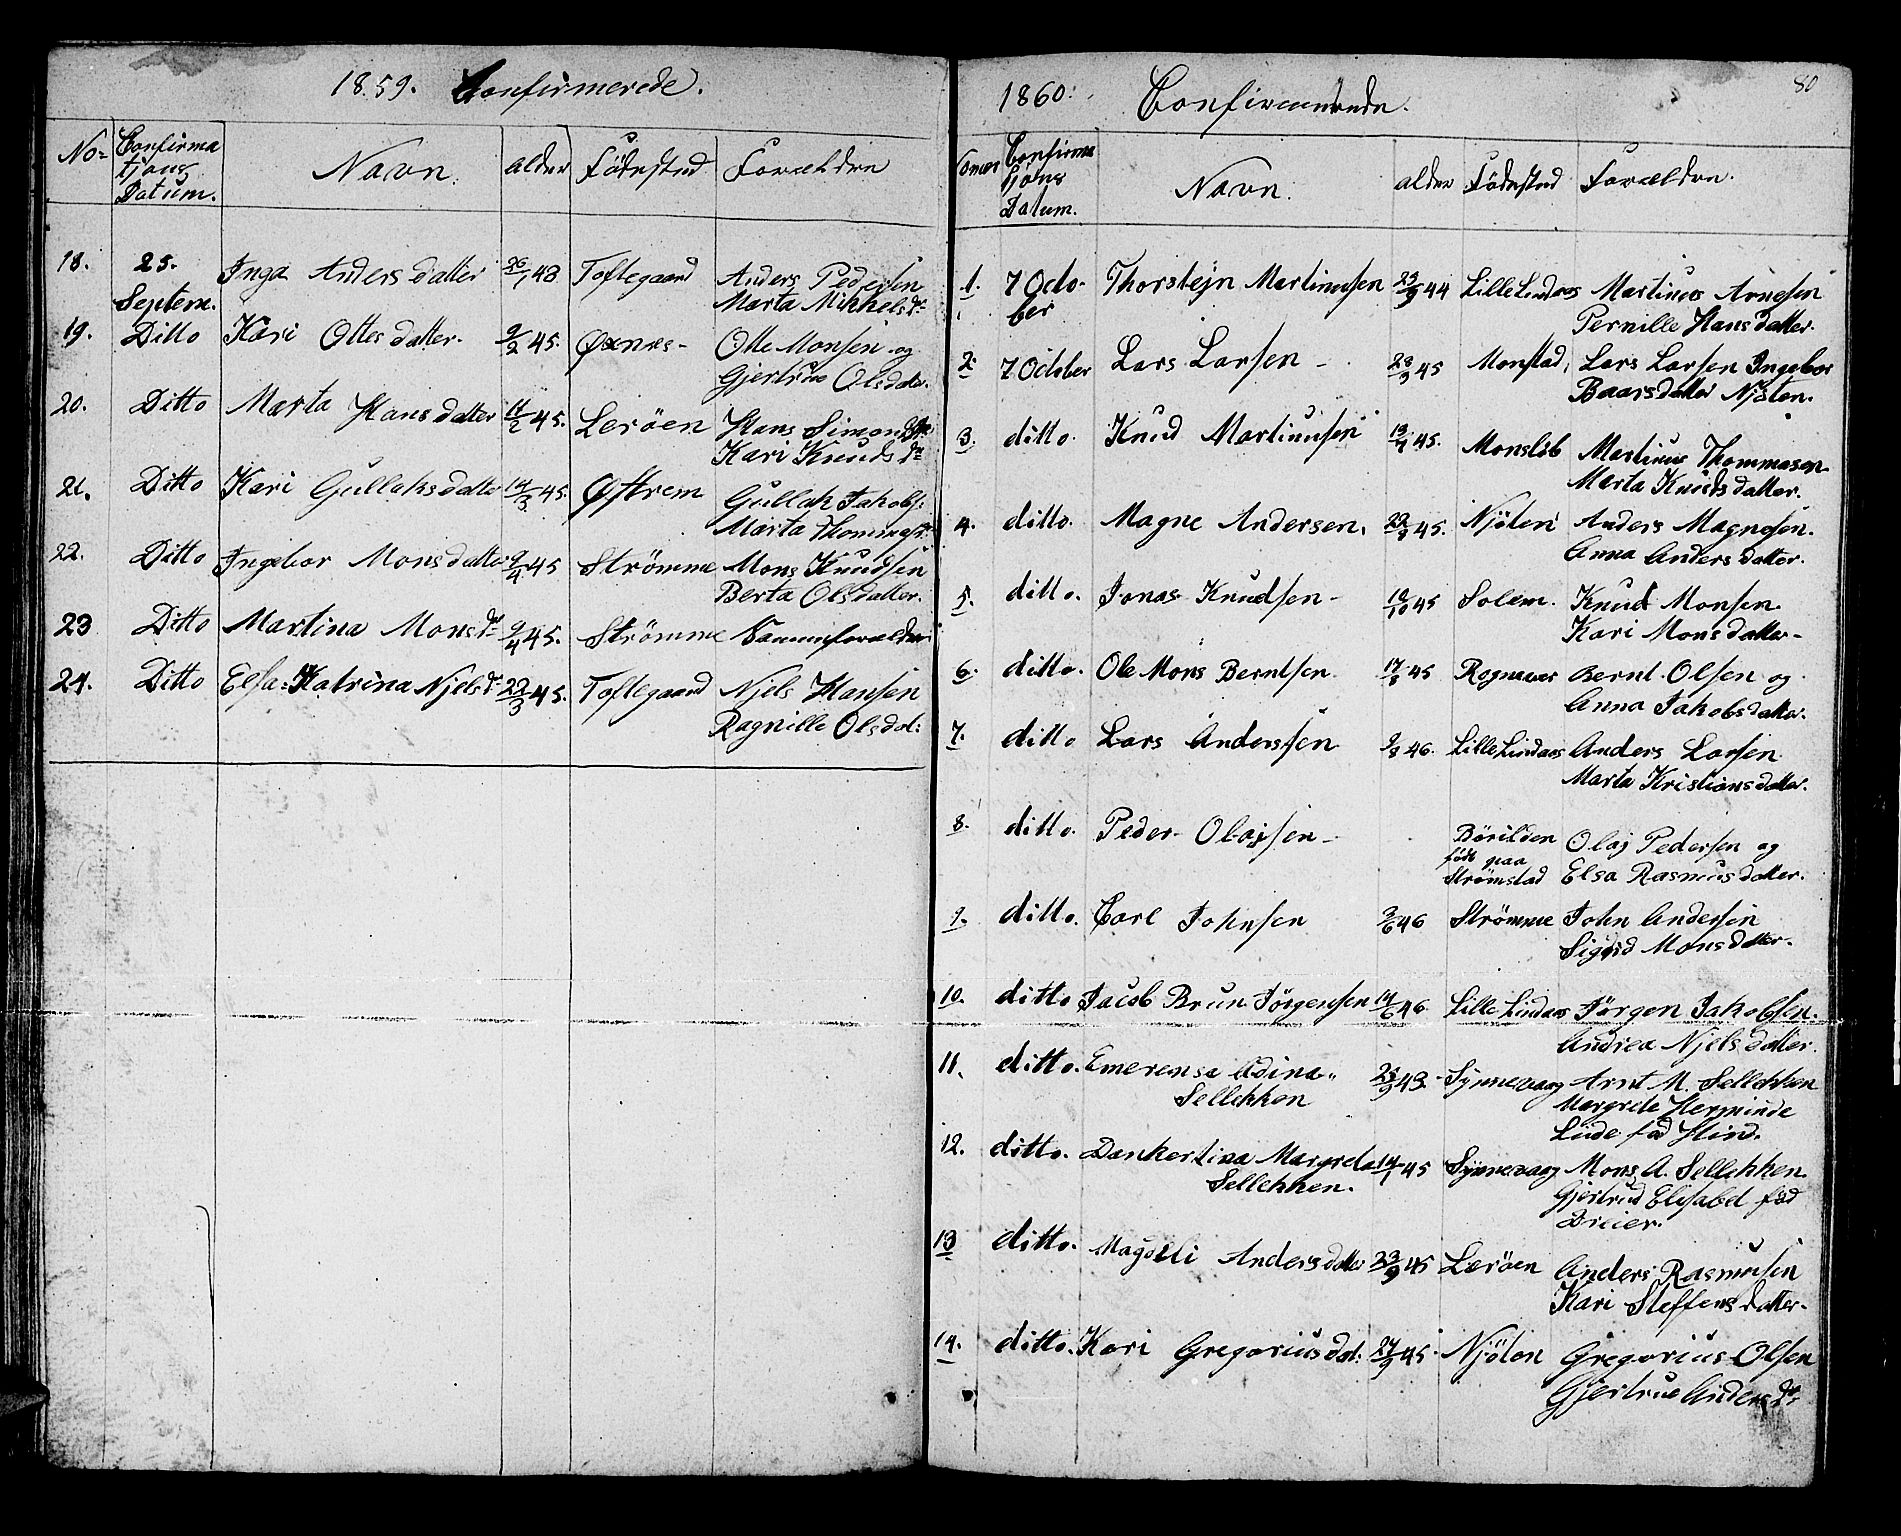 1859. Confirmerede.
No= Confirmatjons Datum. Navn. alder Fødested Forældre
18. 25. Septem. Inga Andersdatter 26/1 43 Toftegaard Anders Pedersen
Marta Mikkelsdr
19. Ditto Kari Ottesdatter. 9/2 45. Øxnes- Otte Monsen og
Gjertrue Olsdater.
20. Ditto Marta Hansdatter 11/2 45. Lerøen Hans Simons
Kari Knudsdr
21. Ditto Kari Gullaksdatter 14/3 45. Østrem Gullak Jakobs.
Marta Thommasdr
22. Ditto Ingebor Monsdatter 9/4 45 Strømme Mons Knudsen
Berta Olsdatter.
23 Ditto Martina Monsdr 9/4 45. Strømme Sammeforældre
24. Ditto Elsa=Katrina Njelsdr 22/3 45. Toftegaard Njels Hansen
Ragnille Olsdat:
80
1860: Confirmerede.
Nomer Confirmatjons Datum. Navn. alder Fødested Forældre.
1. 7 October Thorstejn Martinusen 23/9 44 Lille Lindaas Martinus Arnesen
Pernille Hansdatter.
2. 7 October Lars Larsen - 28/3 45 Monstad, Lars Larsen Ingebor
Baarsdatter Njøten.
3. ditto. Knud Martinusen 13/7 45. Monsløb Martinus Thommasen
Marta Knudsdatter.
4. ditto. Magne Andersen. 22/8 45. Njøten Anders Magnesen.
Anna Andersdatter.
5. ditto. Jonas Knudsen- 18/10 45 Solem. Knud Monsen
Kari Monsdatter-
6. ditto. Ole Mons Berntsen 17/8 45 Rognevær Bernt Olsen og
Anna Jakobsdatter.
7. ditto Lars Anderssen 9/8 46. Lille Lindaas Anders Larsen
Marta Kristiansdatter.
8. ditto. Peder- Olajsen- Børilden Olaj Pedersen og
født paa
Strømstad Elsa Rasmusdatter.
9. ditto. Carl Johnsen 2/6 46 Strømme John Andersen
Sigrid Monsdatter.
10. ditto Jacob Brun Jørgensen 14/6 46 Lille Lindaas Jørgen Jakobsen.
Andrea Njelsdatter.
11. ditto. Emerensa Adina" 25/9 43- Synnevaag Arnt M. Sellekken
Sellekken Margrete Herminde
Lude fød Hind.
12. ditto. Dankertina Margreta 14/1 45 Synnevaag Mons A. Sellekken
Sellekken. Gjertrud Elisabet fød
Dreier.
13 ditto. Magdeli Andersdatter 23/9 45 Lærøen Anders Rasmusen
Kari Steffensdatter-
14. ditto. Kari Gregoriusdat: 27/9 45. Njøten Gregorius Olsen
Gjertrue Andersdr